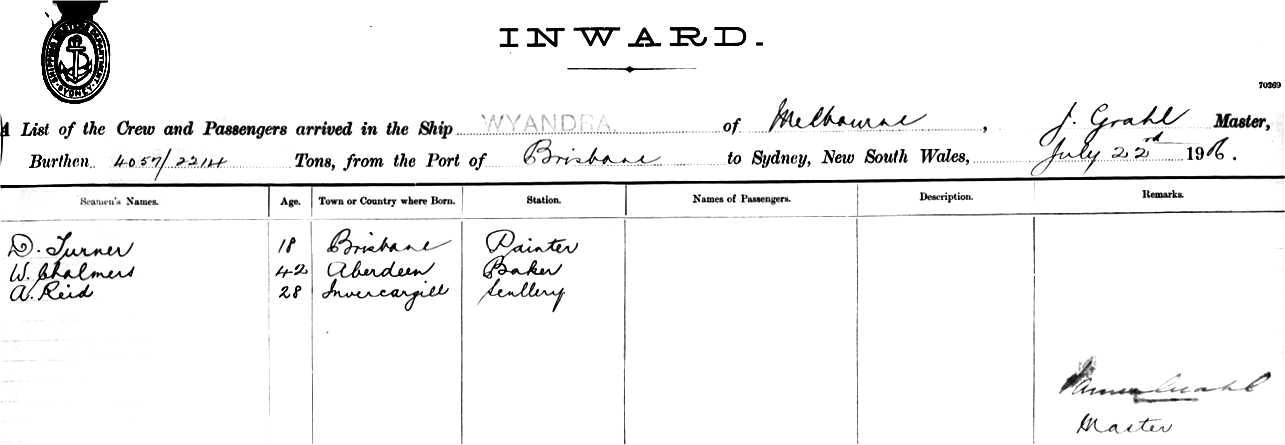 SHIPPING MASTER'S DEPARTMENT SYDNEY
INWARD.
70269
A List of the Crew and Passengers arrived in the Ship WYANDRA of Melbourne, J. Grahl Master,
Burthen 4057/2214 Tons, from the Port of Brisbane to Sydney, New South Wales, July 22nd 1916.
Seamen's Names. Age. Town or Country where Born. Station. Names of Passengers. Description. Remarks.
D. Turner 18 Brisbane Painter
W. Chalmers 42 Aberdeen Baker
A. Reid 28 Invercargill Scullery
Grahl
Master